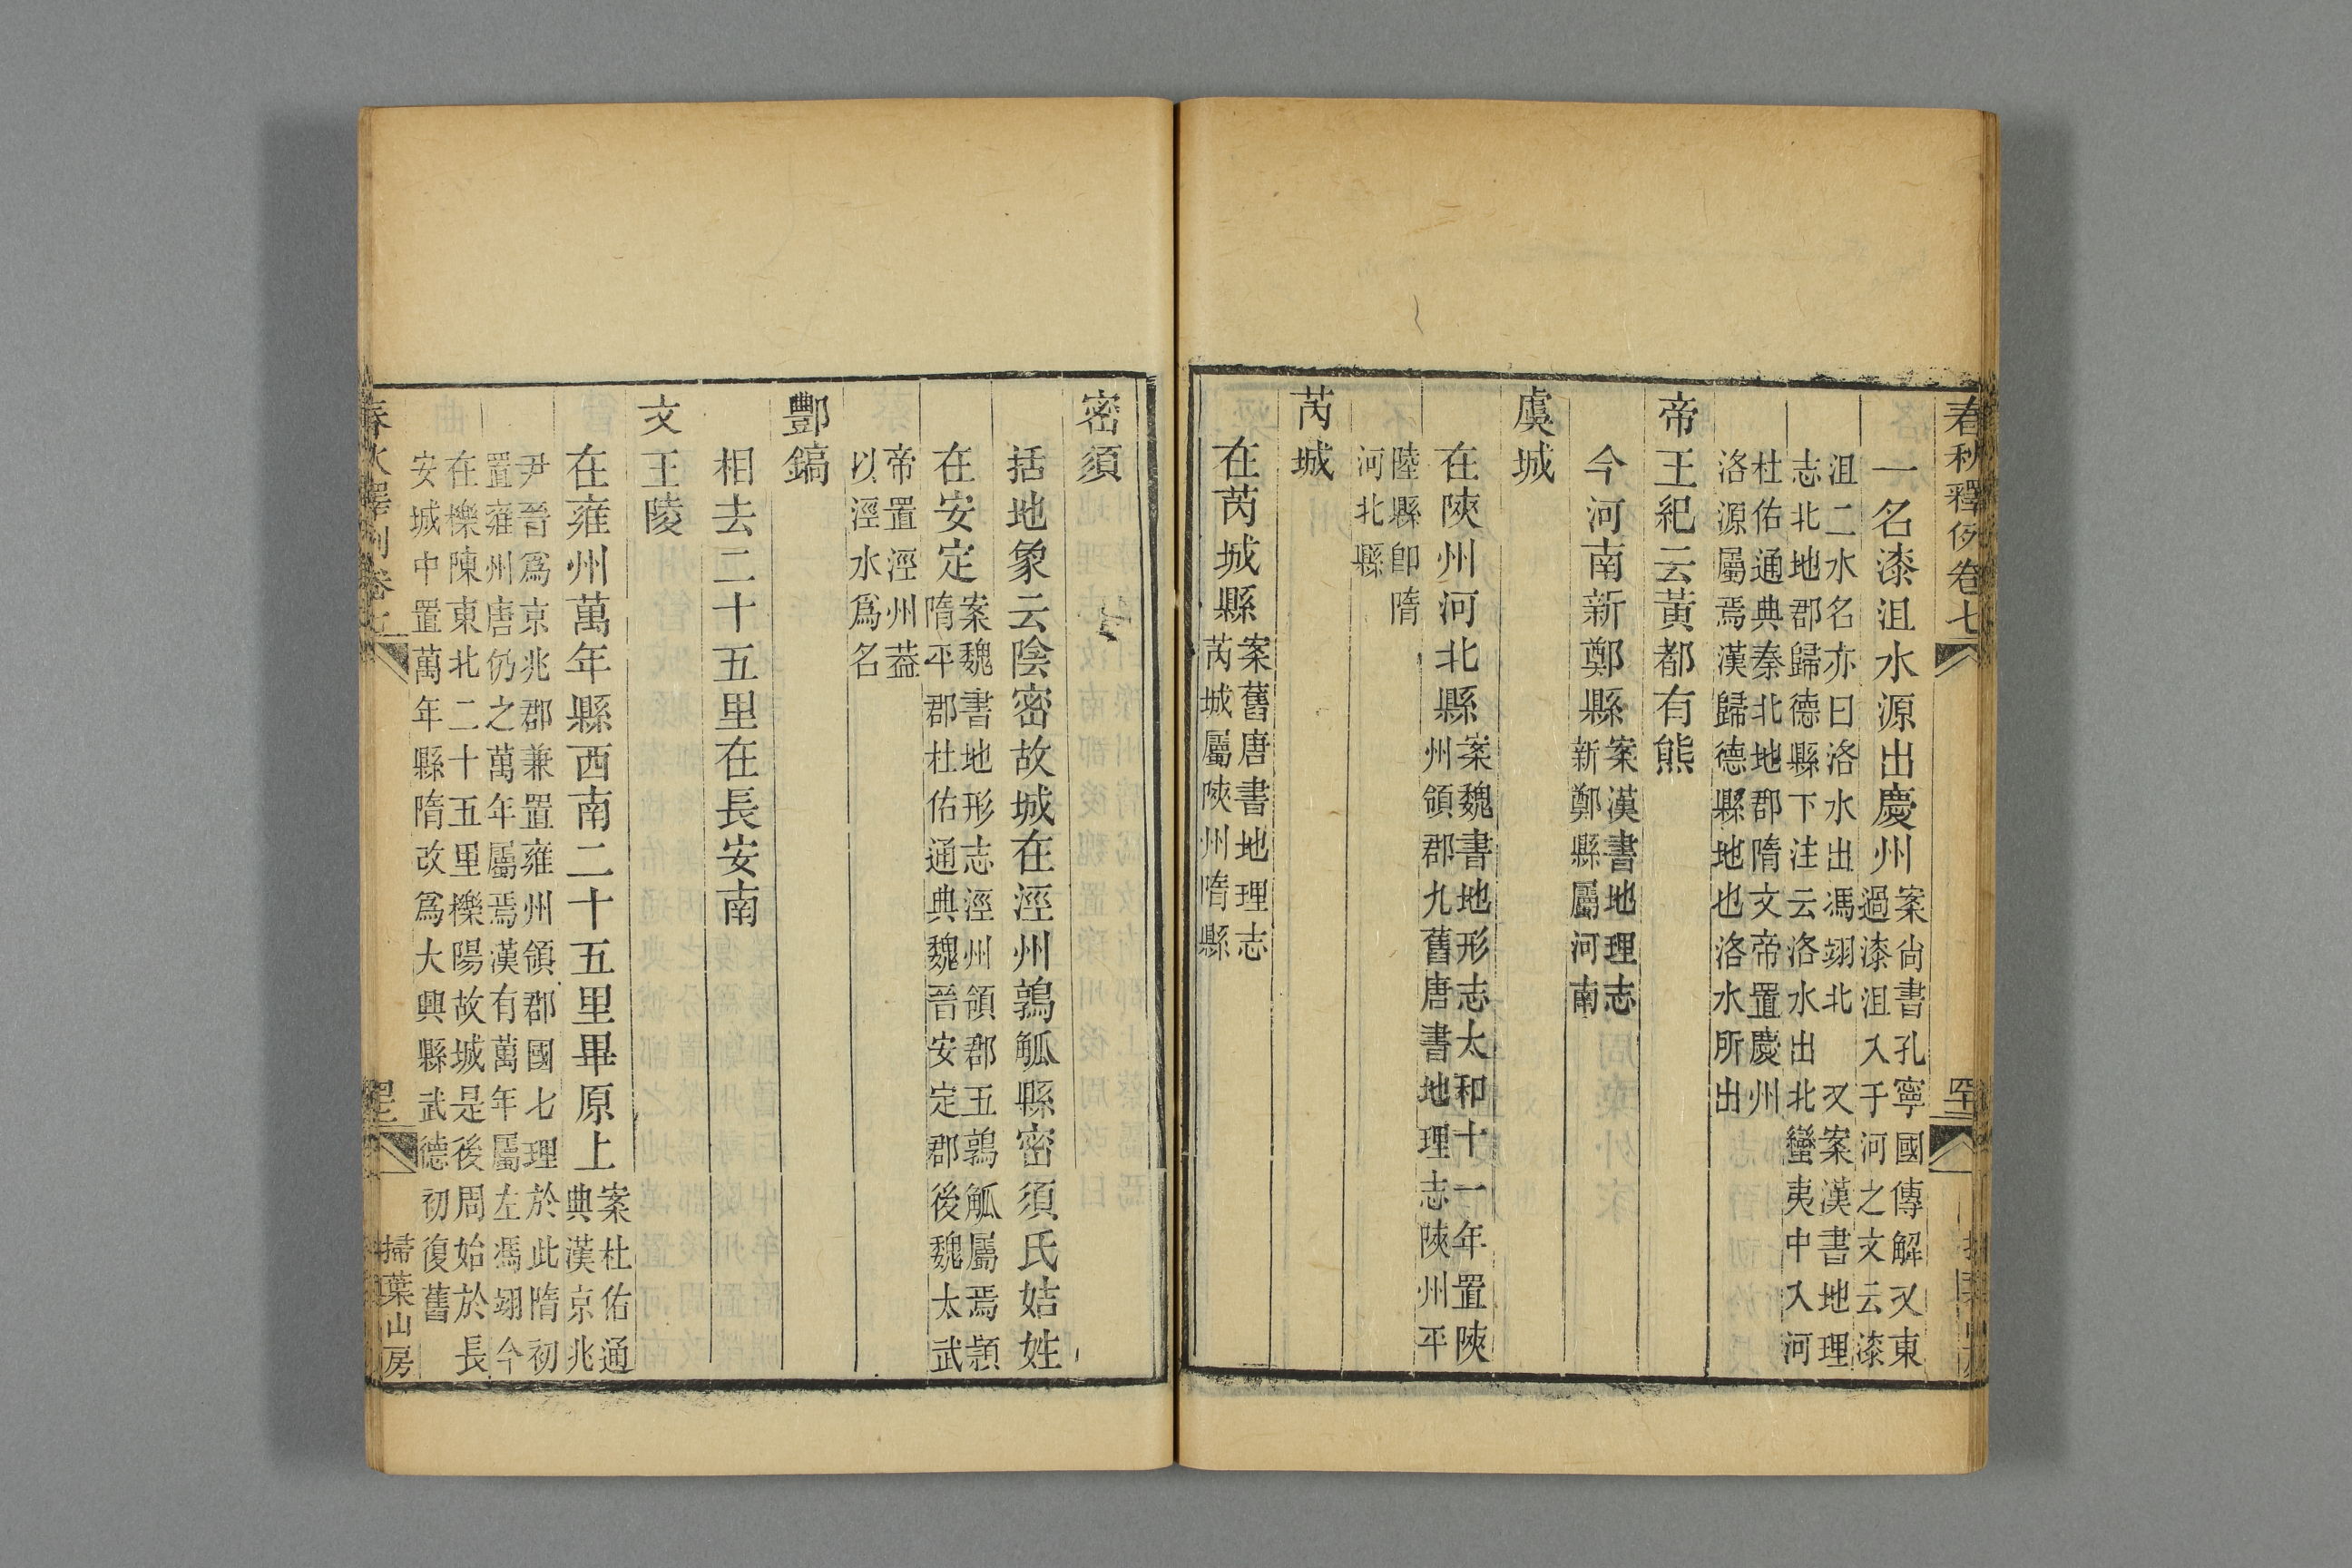 春秋釋例卷七
一名漆沮水源出慶州
案尙書孔寧國傳解又東
過漆沮入于河之文云漆
沮二水名亦曰洛水出馮翊北 又案漢書地理
志北地郡歸德縣下注云洛水出北蠻夷中入河
杜佑通典秦北地郡隋文帝置慶州
洛源屬焉漢歸德縣地也洛水所出
帝王紀云黃都有熊
今河南新鄭縣
案漢書地理志
新鄭縣屬河南
虞城
在陝州河北縣
案魏書地形志太和十一年置陝
州領郡九舊唐書地理志陝州平
陸縣卽隋
河北縣
芮城
在芮城縣
案舊唐書地理志
芮城屬陝州隋縣
密須
括地象云陰密故城在涇州鶉觚縣密須氏姞姓
在安定
案魏書地形志涇州領郡五鶉觚屬焉顈
隋平郡杜佑通典魏晉安定郡後魏太武
帝置涇州葢
以涇水爲名
酆鎬
相去二十五里在長安南
文王陵
在雍州萬年縣西南二十五里畢原上
案杜佑通
典漢京兆
尹晉爲京兆郡兼置雍州領郡國七理於此隋初
置雍州唐仍之萬年屬焉漢有萬年屬左馮翊今
在櫟陳東北二十五里櫟陽故城是後周始於長
安城中置萬年縣隋改爲大興縣武德初復舊
掃葉山房